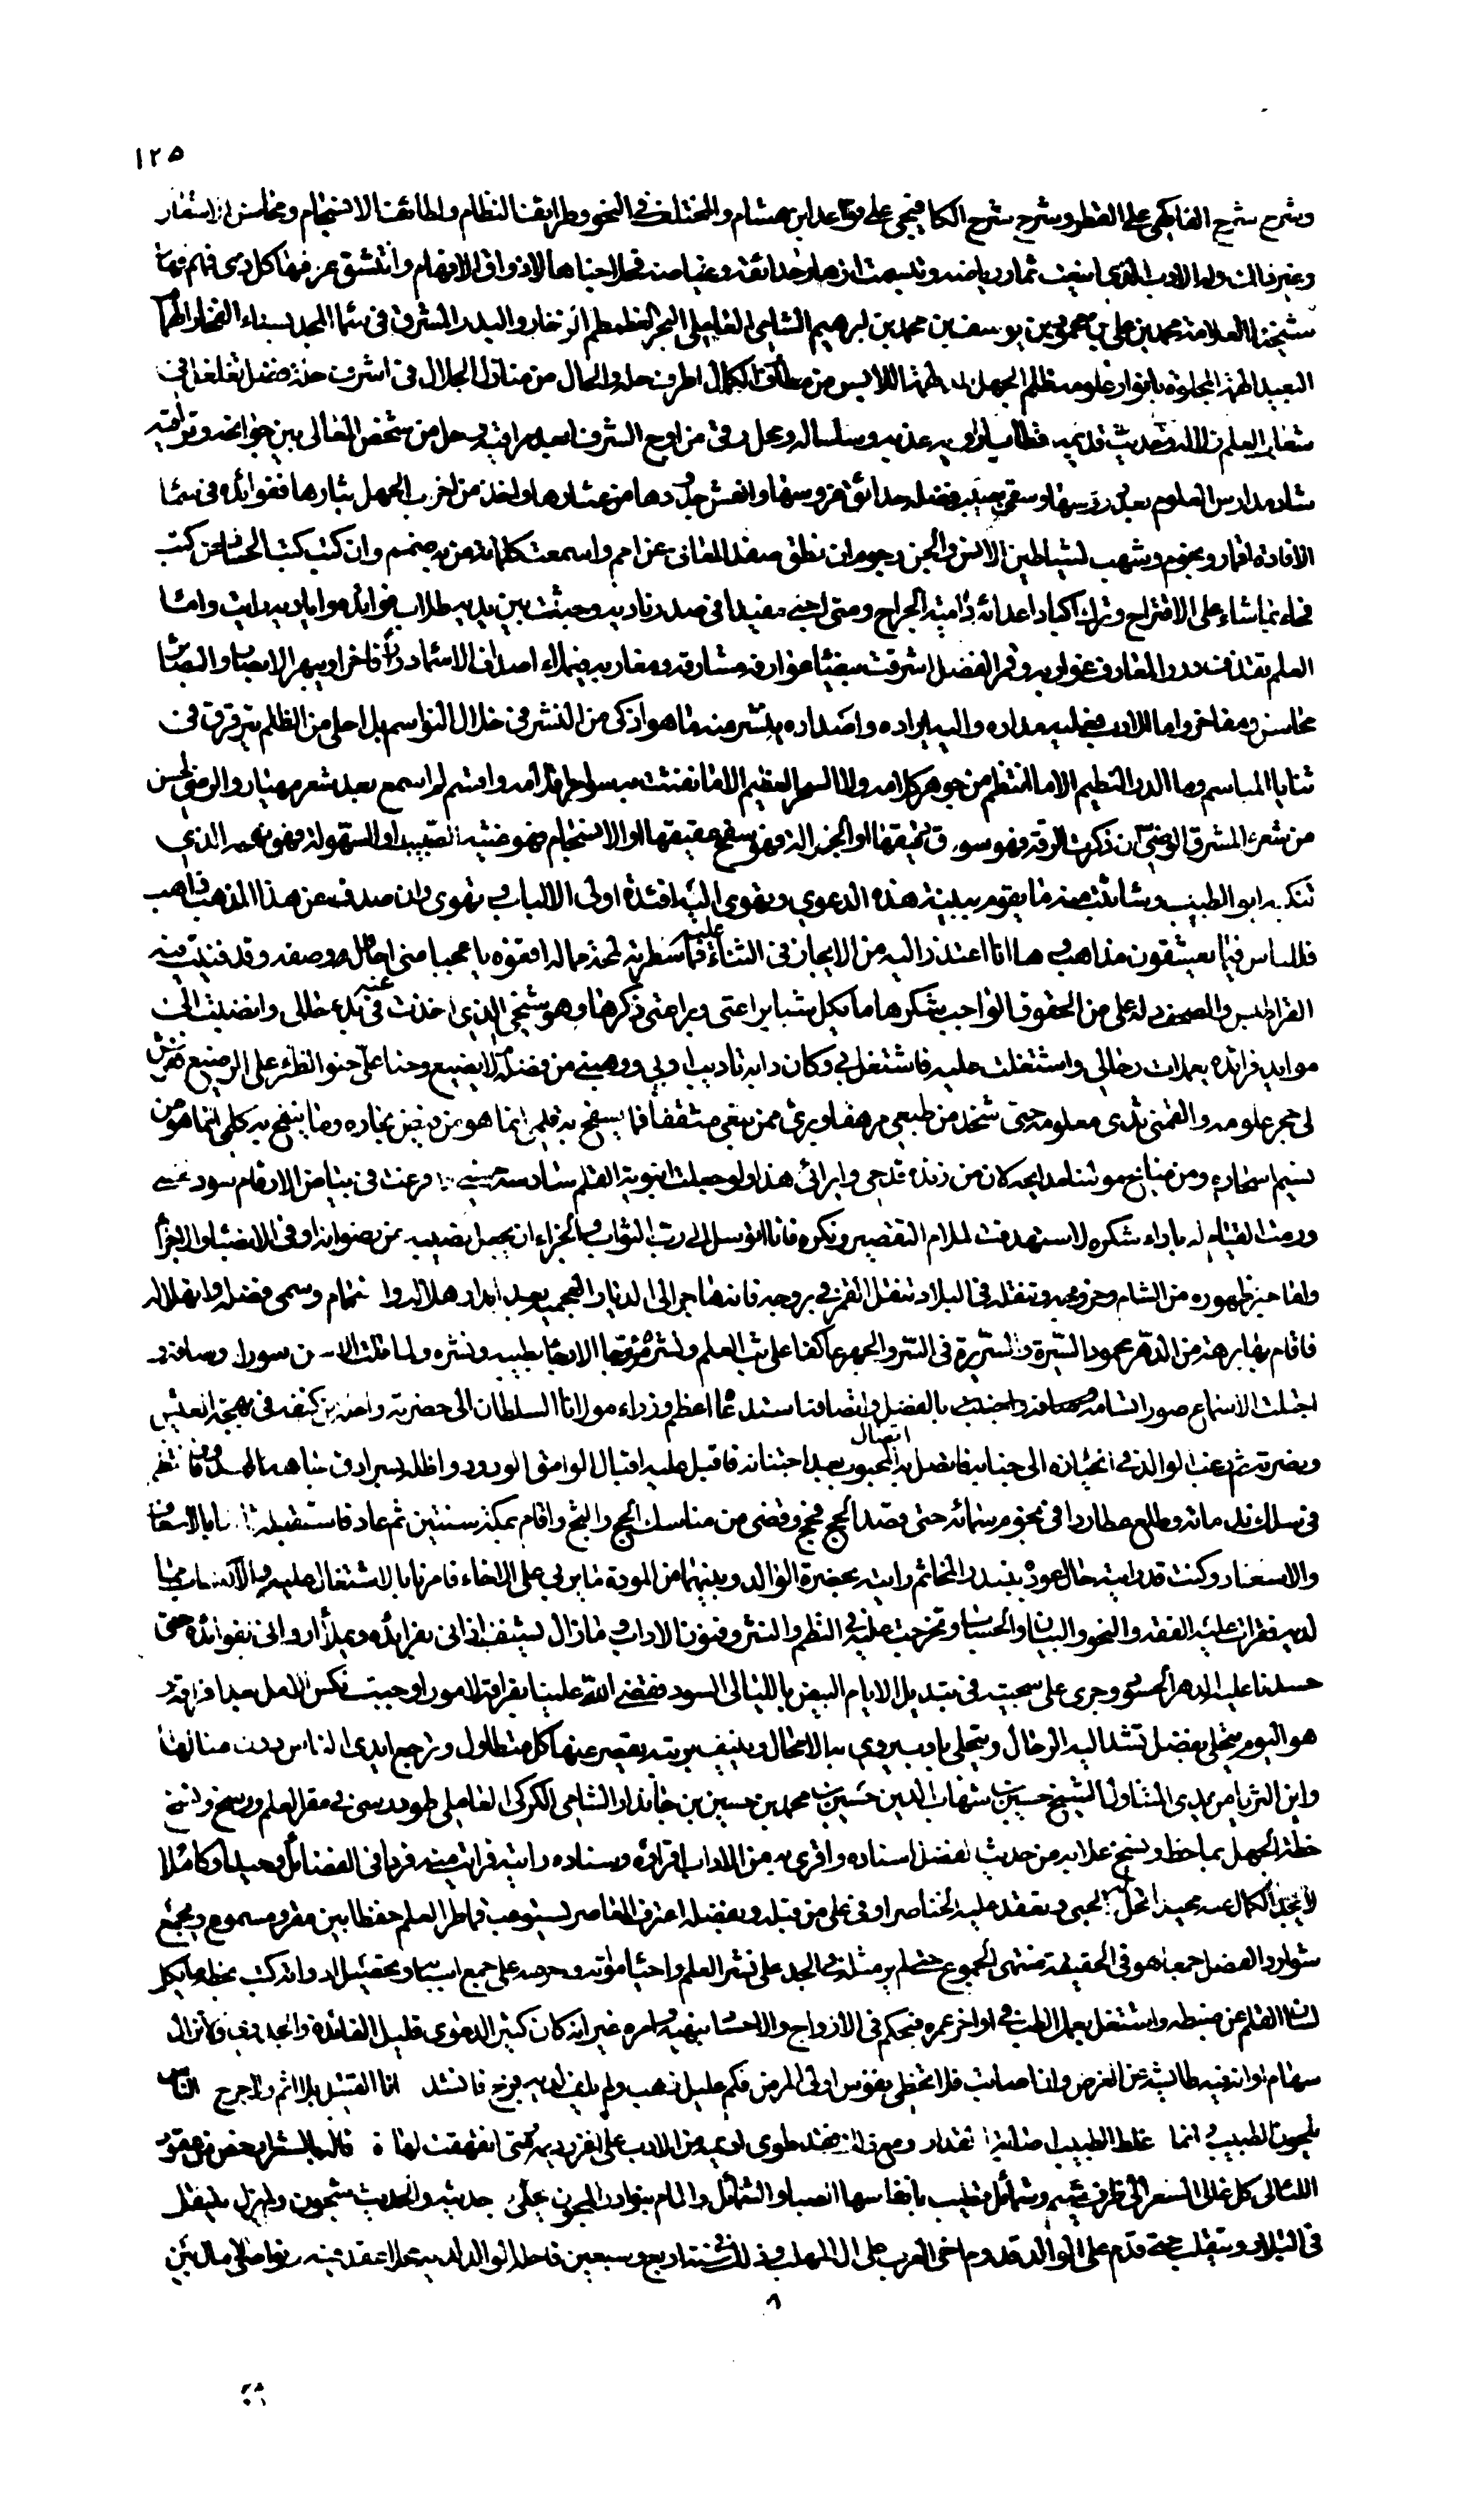 ١٢٥
وشرح شرح الفاكهي على القطر وشرح شرح الكافيجي على قواعد ابن هشام والمختلف في النحو وطرائف النظام ولطائف الانسجام ومحاسن الاشعار
وغير ذلك وله الادب الذي اينعت ثمار رياضه وتبسمت ازهار حدائقه وغياضه فحلا جناها لاذواق الافهام وانتشق عرفها كل ذي فهم
شيخنا العلامة محمد بن علي بن محمود بن يوسف بن محمد بن ابراهيم الشامي العاملي البحر الغطمطم الزخار والبدر المشرق في سماء المجد بسناء الفخار الهمام
البعيد الهمه المجلوة بانوار علومه ظلم الجهل المدلهمه اللابس من مطارف الكمال اظرف حله والحال من منازل الجلال في اشرف حله فضل تغلغل في
شعاب العلم زلاله وحديث قديمه فطاب لراويه عذبه وسلساله ومحل رقى من اوج الشرف ابعد مراقيه وحل من شخص المعالي بين جوانحه وتراقيه
شاد مدارس العلوم بعد دروسها وسقى بصيب فضله حدائق غروسها وانعش جدودها من عثارها واخذ من احزاب الجهل بثارها ففوائده في سماء
الافادة اقمار ونجوم وشهب لشياطين الانس والجن رجوم ان نطق صفد المعاني عن امم واسمعت كلماته من به صمم وان كتب كبت الحساد عن كثب
فجاء بما شاء على الاقتراح وترك اكباد اعدائه دامية الجراح ومتى احتبى مفيدا في صدر ناديه وجثت بين يديه طلاب فوائده واياديه رايت دأماء
العلم تقذف درر المعارف غواربه وقمر الفضل اشرقت بضياء عوارفه مشارقه ومغاربه فيملاء اصداف الاسماع درا فاخرا ويبهر الابصار والبصائر
محاسن ومفاخر واما الادب فعليه مداره واليه ايراده واصداره ينشر منه ما هو اذكى من النشر في خلال النواسم بل احلى من الظلم يترقرق في
ثنايا المباسم وما الدر النظيم الا ما انتظم من جوهر كلامه ولا السحر العظيم الا ما نفثت به سواحر اقلامه واقسم لم اسمع بعد شعر مهيار والرضي احسن
من شعره المشرق الوضي ان ذكرت الرقة فهو سوق رقيقها او الجزالة فهو سفح عقيقها او الانسجام فهو غيثه الصيب او السهولة فهو نهجه الذي
تنكبه ابو الطيب وسأثبت منه ما يقوم ببينة هذه الدعوى وتهوى اليه افئدة اولى الالباب وتهوى وان صدف عن هذا المذهب ذاهب
فللناس فيما يعشقون مذاهب وها انا اعتذر اليه من الايجاز في الثناء عليه فما سطرته لمحة مما له افقوه يا عجبا مني احاول وصفه وقد فنيت فيه
القراطيس والصحف وله علي من الحقوق الواجب شكرها ما يكل شبا يراعتي وبراعتي ذكرها وهو شيخي الذي اخذت عنه في بدء حالي وانضيت الى
موائد فوائده يعملات رحالي واشتغلت عليه فاشتغل بي وكان دابه تاديبي ووهبني من فضله ما لا يضيع وحنا علي حنو الظئر على الرضيع ففرش
لي حجر علومه والقمني ثدي معلومه حتى شحذ من طبعي مرهفا وبرى من نبعي مثقفا فما يسفح به قلمي انما هو من فيض بحاره وما ينفح به كلمي انما هو من
نسيم اسحاره ومن منابح مولاي مدايحه لان من زنده قدحي وايرائي هذا ولو جعلت انبوبة القلم سادسة خمسي وفرغت في بياض الارقام سود نقسي
ورمت القيام له باداء شكره لاستهدفت لملام التقصير ونكره فانا اتوسل الى رب الثواب والجزاء ان يجعل نصيبه من رضوانه اوفى الانصباء والاجزاء
واما خبر ظهوره من الشام وخروجه وتنقله في البلاد تنقل القمر في بروجه فانه هاجر الى الديار العجميه بعد ابدار هلاله وانسجام وسمي فضله وانهلاله
فاقام بها برهة من الدهر محمود السيرة والسريرة في السر والجهر عاكفا على بث العلم ونشره مؤرجا الارجاء بطيبه ونشره ولما تلت الالسن سور اوصافه و
اجتلت الاسماع صور اتسامه بالفضل واتصافه استدعاه اعظم وزراء مولانا السلطان الى حضرته واحله من كنفه في بهجة العيش
ونضرته ثم رغب الوالد في انحيازه الى جنابه فاتصل به اتصال المحبوب بعد اجتنابه فاقبل عليه اقبال الوامق الودود واظله بسرادق جاهه الممدود فانتظم
في سلك ندمائه وطلع عطاردا في نجوم سمائه حتى قصد الحج فحج وقضى من مناسك الحج والثج واقام بمكة سنتين ثم عاد فاستقبله ثانيا بالاسعاف
والاسعاد وكنت قد رايته حال عوده ببندر المخا ثم رايته بحضرة الوالد وبينهما من المودة ما يربي على الاخاء فامرني بالاشتغال عليه والاكتساب مما
لديه فقرأت عليه الفقه والنحو والبيان والحساب وتخرجت عليه في النظم والنثر وفنون الاداب وما زال يشنف اذاني بفرائده ويملأ ارداني بفوائده حتى
حسدنا عليه الدهر الحسود وجرى على سجيته في تبديل الايام البيض بالليالي السود فقضى الله علينا بفراقه لامور اوجبت نكس الامل بعد افراقه و
هو اليوم متحلي بفضل تشد اليه الرحال ويتجلى بادب يروي به الامحال وينيف برتبة يقصر عنها كل متطاول وترجع ايدي الناس دون منالها
واين الثريا من يدي المتناول الشيخ حسين بن شهاب الدين حسين بن محمد بن حسين بن خاندار الشامي الكركي العاملي طود رسى في مقر العلم ورسخ ونسخ
خطة الجهل بما خط ونسخ علا به من حديث الفضل اسناده واقرى به من الاداب اقراؤه وسناده رايته فرايت منه فردا في الفضائل وحيدا وكاملا
لا يجد الكمال عنه محيدا تحل له الحبى وتعقد عليه الخناصر اوفى على من قبله وبفضله اعترف المعاصر يستوعب قماطر العلم حفظا بين مقروء ومسموع ويجمع
شوارد الفضل جمعا هو في الحقيقة منتهى الجموع حتى لم ير مثله في الجد على نشر العلم واحياء مواته وحرصه على جمع اسبابه وتحصيل ادواته كتب بخطه ما يكل
لسان القلم عن ضبطه واشتغل بعلم الطب في اواخر عمره فتحكم في الارواح والاجساد بنهيه وامره غير انه كان كثير الدعوى قليل الفائدة والجدوى ولا تزال
سهام آرائه فيه طائشة عن الغرض وان اصابت فلا تخطي نفوس اولى المرض فكم عليل ذهب ولم يلف لديه فرج فانشد انا القتيل بلا اثم ولا حرج الناس
يلحون الطبيب وانما غلط الطبيب اصابة المقدار ومع ذلك فقد طوى اديمه من الادب على اغزر ديمه ومتى تفهقت لهاته قال بالشعر ارخص من عقود
اللئالي كل غالي السعر الى ظرف شيم وشمائل تطيب بانفاسها الصبا والشمائل والمام بنوادر المجون يحلي حديثه والحديث شجون ولم يزل يتنقل
في البلاد وتنقلب حتى قدم على الوالد قدوم اخي العرب على ال المهلب وذلك في سنة اربع وسبعين فاحله الوالد لديه محلا عقد فيه نواصي الامال بين
٨